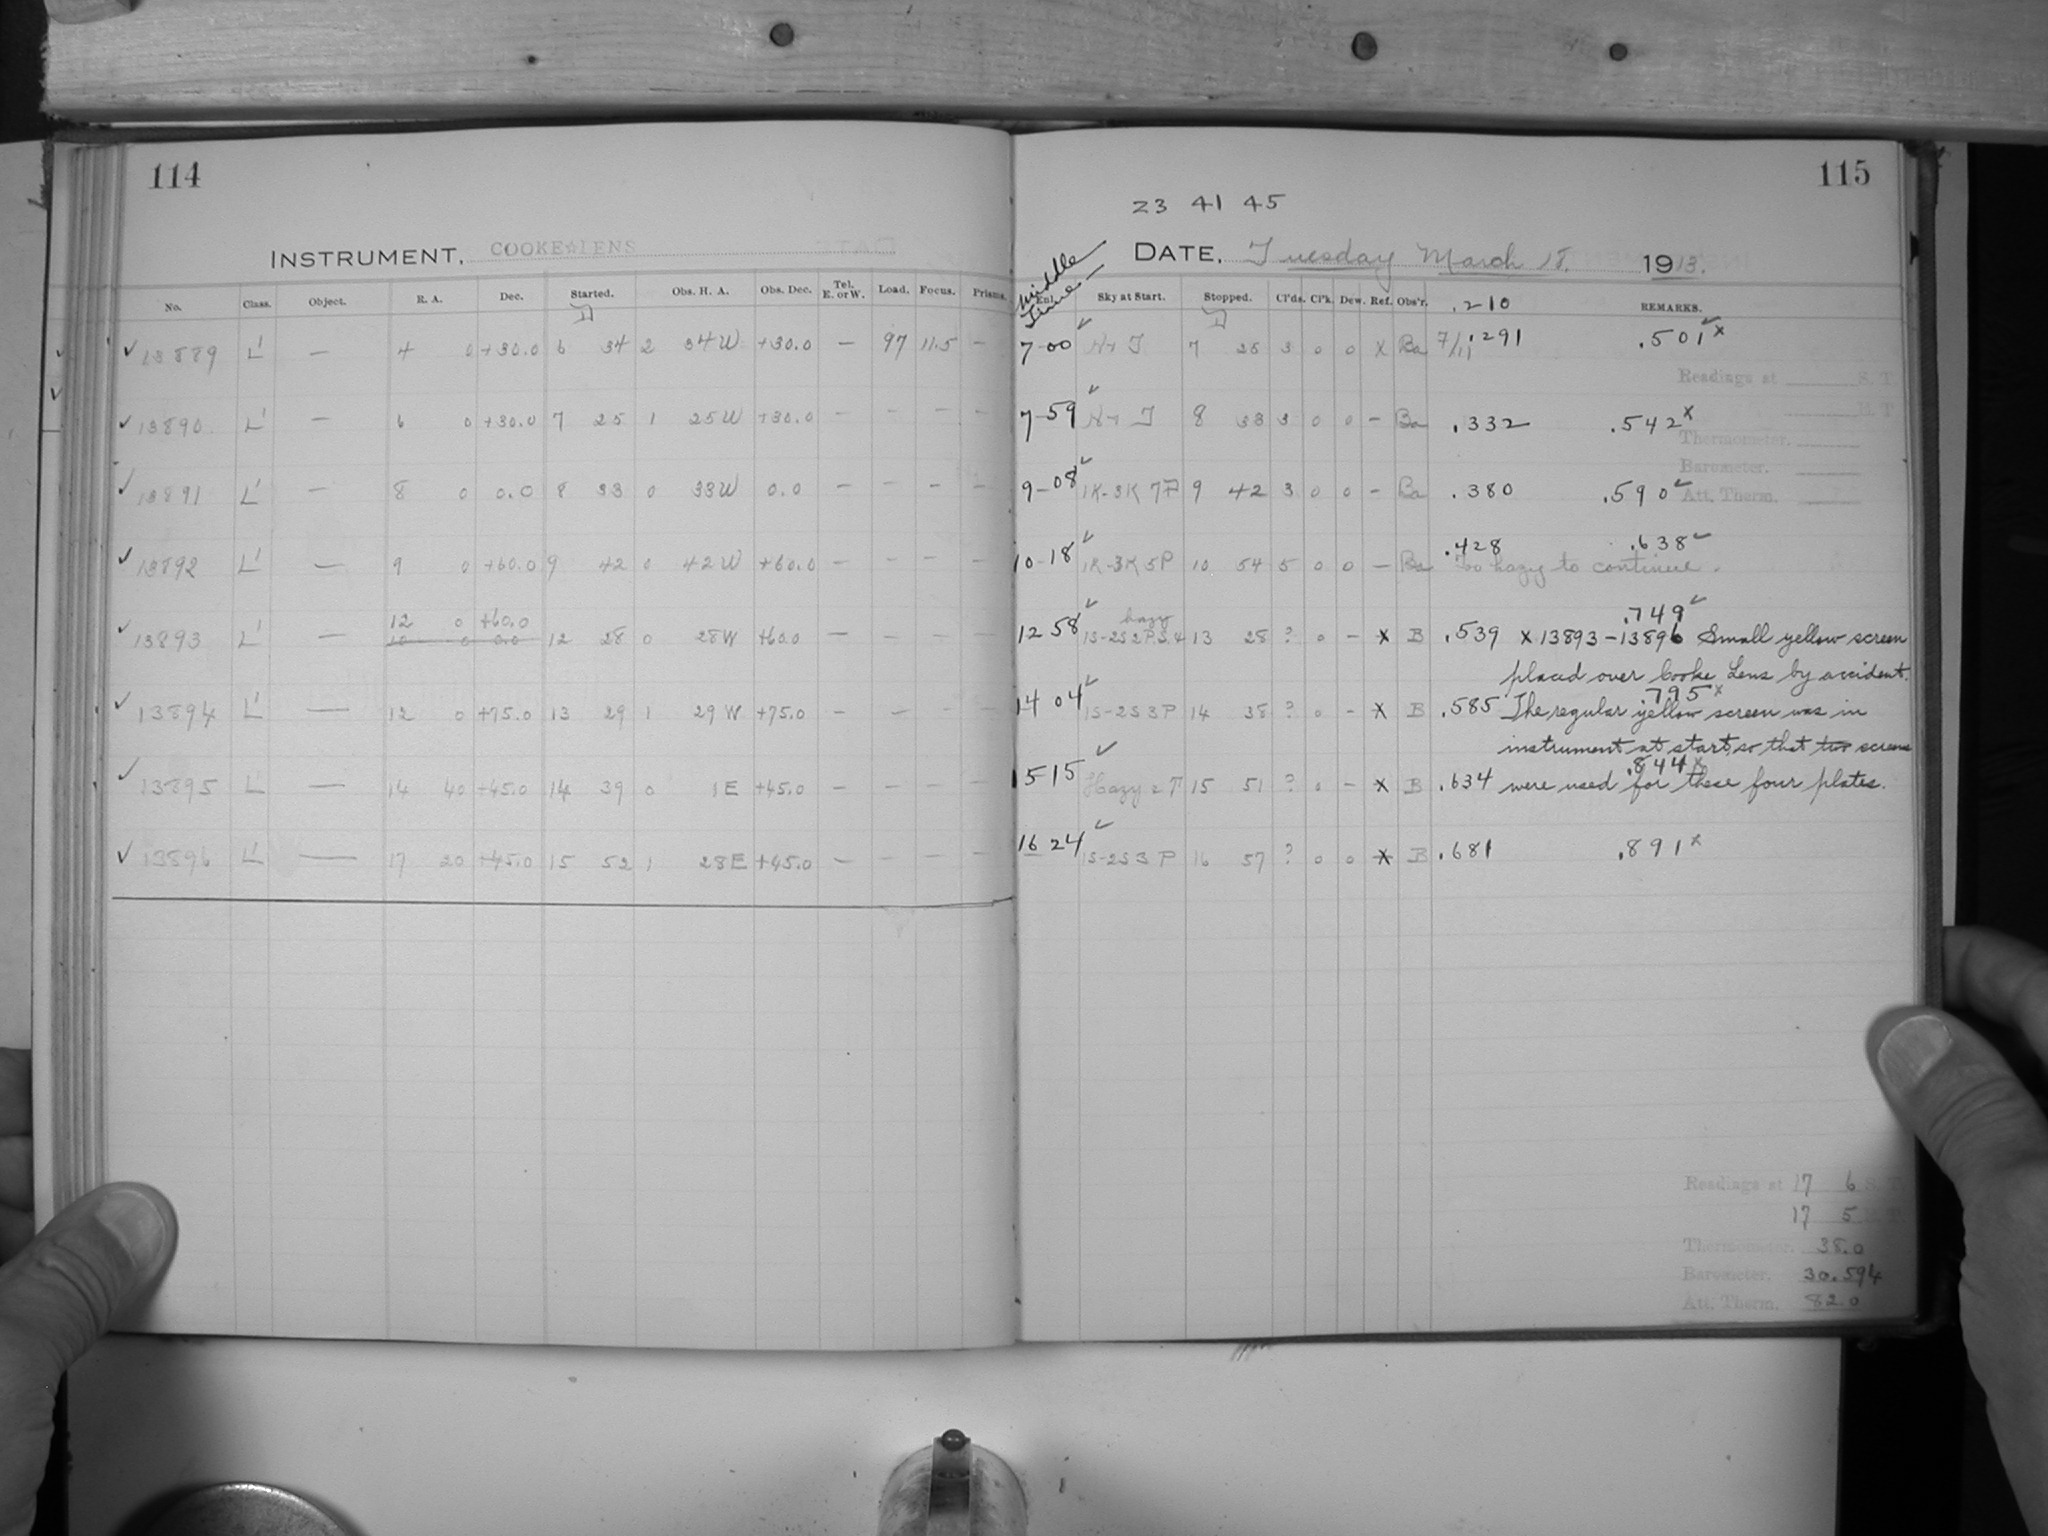 114
INSTRUMENT, COOKE LENS
No. Class. Object. R. A. Dec. Started. Obs. H. A. Obs. Dec. Tel. E. or W. Load. Focus. Prisms.
13889 L' — 4 0 +30.0 6 34 2 34W +30.0 — 97 11.5 —
13890 L' — 6 0 +30.0 7 25 1 25W +30.0 — — — —
13891 L' — 8 0 0.0 8 33 0 33W 0.0 — — — —
13892 L' — 9 0 +60.0 9 42 0 42W +60.0 — — — —
12 0 +60.0
13893 L' — 10 0 0.0 12 28 0 28W +60.0 — — — —
13894 L' — 12 0 +75.0 13 29 1 29W +75.0 — — — —
13895 L' — 14 40 +45.0 14 39 0 1E +45.0 — — — —
13896 L' — 17 20 +45.0 15 52 1 28E +45.0 — — — —
115
23 41 45
DATE, Tuesday March 18. 1913.
Middle Time
Exl. Sky at Start. Stopped. Cl'ds. Cl'k. Dew. Ref. Obs'r. .210 REMARKS.
7-00 7 25 3 0 0 X Ba 7/11 .291 .501 x
Readings at S. T.
7-59 8 33 3 0 0 – Ba .332 .542 x
Thermometer.
Barometer.
9-08 1K-3K 7P 9 42 3 0 0 – Ba .380 .590 Att. Therm.
.428 .638
10-18 1K-3K 5P 10 54 5 0 0 – Ba Too hazy to continue.
hazy .749
12 58 1S-2S 13 28 ? 0 – X B .539 X 13893-13896 Small yellow screen
placed over Cooke Lens by accident.
.795 x
14 04 1S-2S 3P 14 38 ? 0 – X B .585 The regular yellow screen was in
instrument at start, so that two screens
.844 x
15 15 Hazy 15 51 ? 0 – X B .634 were used for these four plates.
16 24 1S-2S 3P 16 57 ? 0 0 X B .681 .891 x
Readings at 17 6 S. T.
17 5
Thermometer. 38.0
Barometer. 30.594
Att. Therm. 82.0